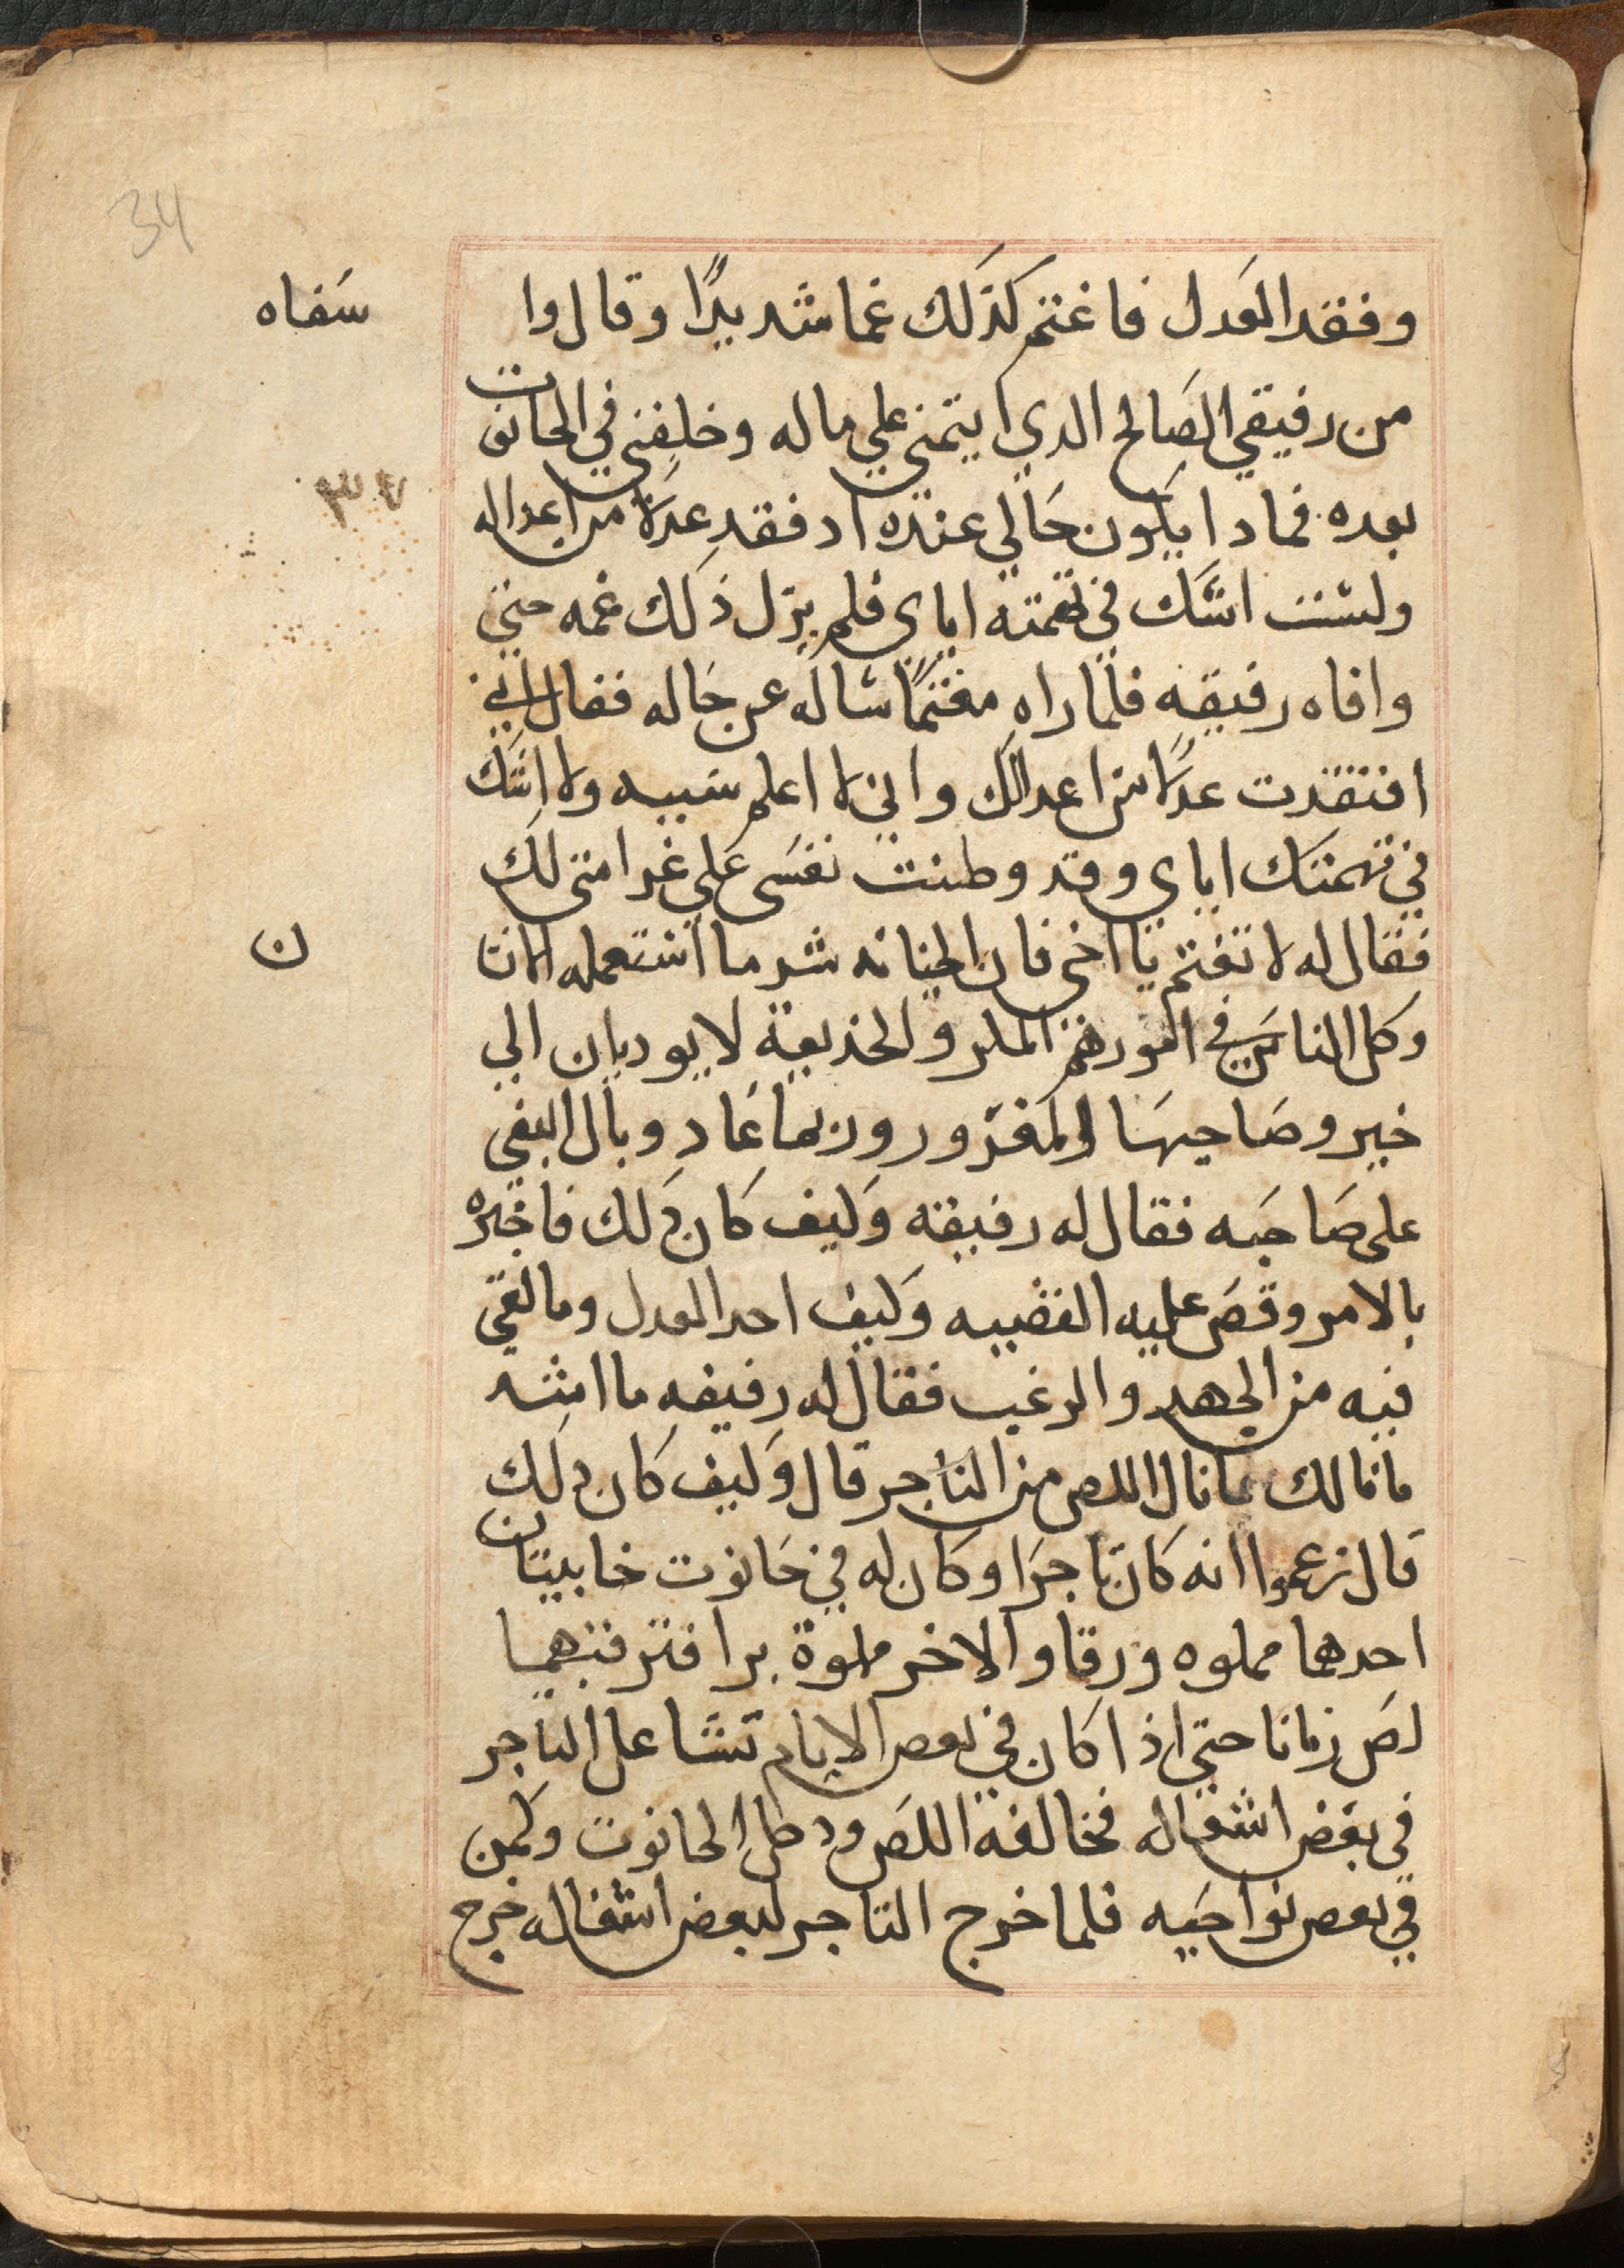 34
وفقد العَدل فاغتم كذَلك غما شديدًا وقال وا سَفاه
من رفيقي الصَالح الدي ايتمني علي ماله وخلفني في الحانوت
بعده فمادا يكون حَالي عنده اد فقد عدلا من اعداله
٣٤
ولست اشك في تهمته اياي فلم يزل ذلك غمه حتي
وافاه رفيقه فلما راه مغتمًا ساله عن حَاله فقال اني
افتقدت عدلا من اعدالك واني لا اعلم سببه ولا اشك
في تهمتك اياي وقد وطنت نفسَى عَلي غرامتى لك
فقال له لا تغتم يا اخى فان الخيانه شر ما استعمله الانسان
وكل الناس في امورهم المكر والخديعة لا يوديان الي
خير وصَاحبهَا المغرور وربما عَاد وبال البغي
على صَاحبه فقال له رفيقه وكيف كان دَلك فاخبره
بالامر وقصَ عليه القضيه وكيف احد العدل وما لقي
فيه من الجهد والرغب فقال له رفيقه ما اشد
مانالك مانال اللص من التاجر قال وكيف كان دلك
قال زعموا انه كان تاجرَا وكان له في حَانوت خابيتان
احدها مملوه ورقا والاخر ملوة برا فترقبهما
لصَ زمانا حتي اذا كان في بعص الايام تشاعل التاجر
في بعض اشغاله فخالفه اللصَ ودخل الحانوت وكمن
في بعص نواحَيه فلما خرج التاجر لبعض اشغاله خرج